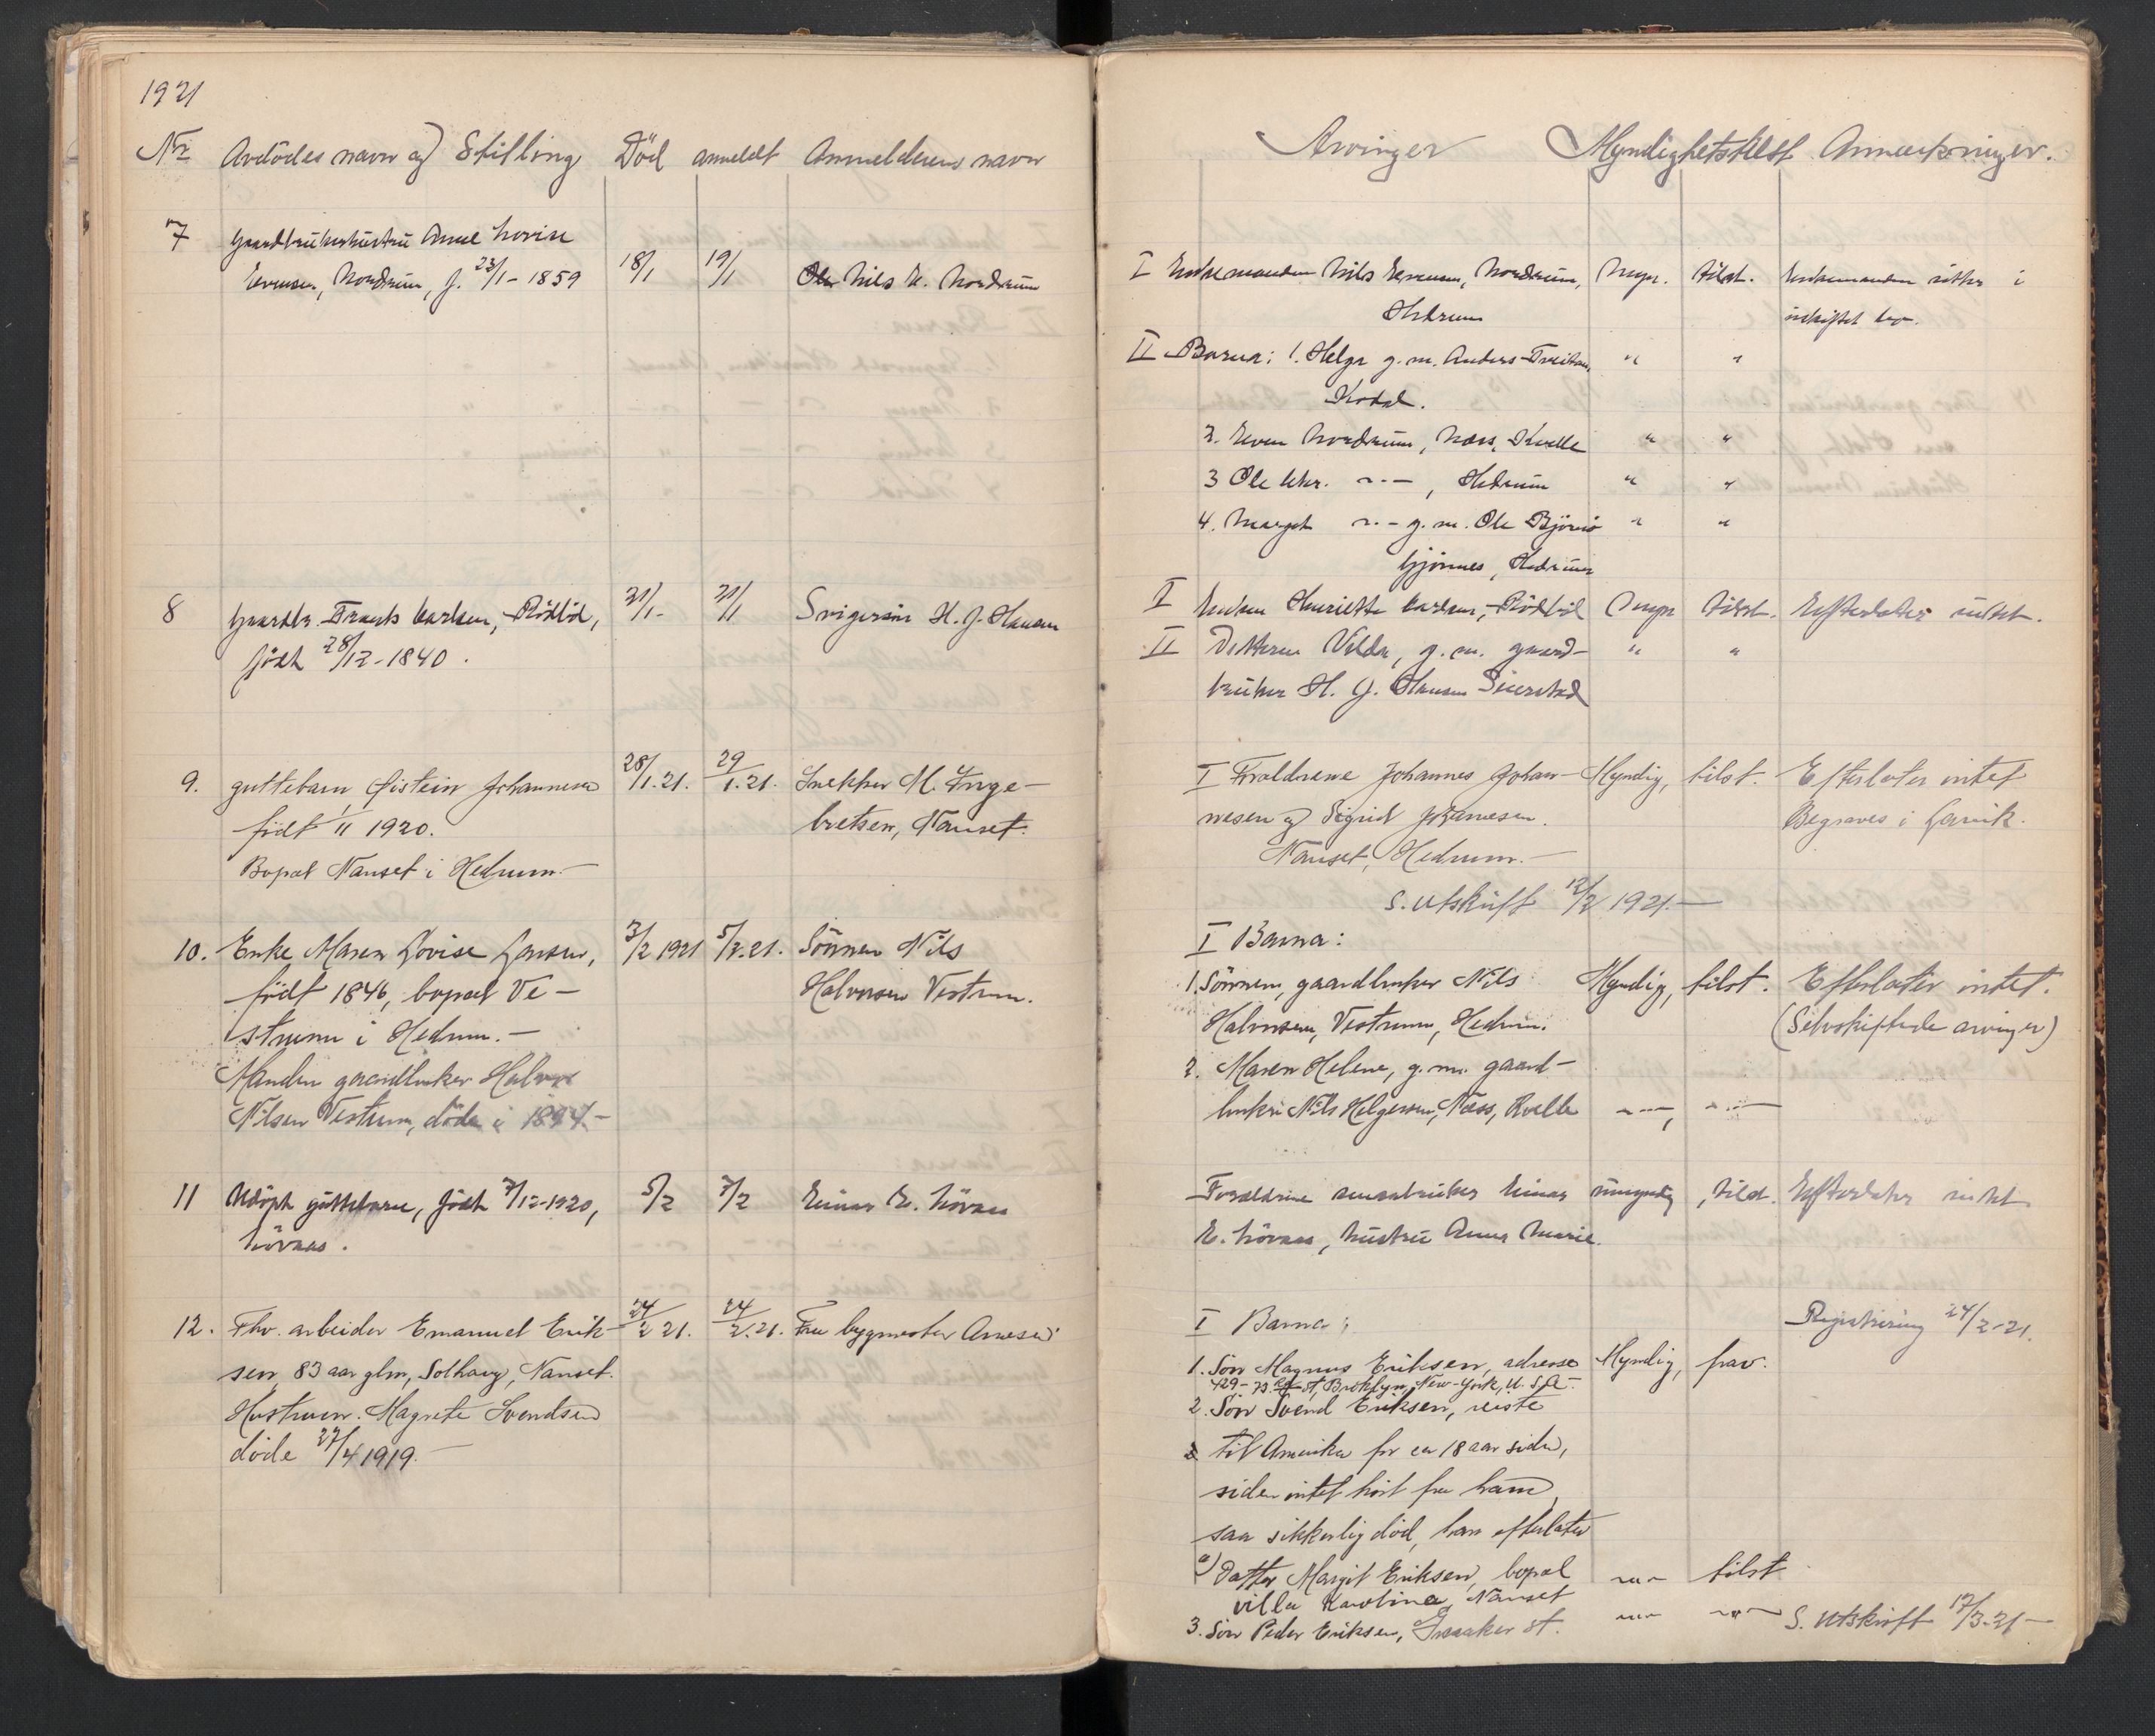 1921
Nr. Avdödes navn og Stilling Död anmeldt Anmelderens navn
7 Gaardbrukerhustru Anne Lovise
Evensen, Nordrum, f. 23/1-1859 18/1 19/1 Nils E. Nordrum
8 Gaardbr. Frants Carlsen, Rödbøl, 31/1- 31/1 Svigersön H. J. Hansen
født 28/12-1840.
9. guttebarn Øistein Johannesen 28/1.21. 29/1.21. Snekker M. Inge-
født 1/11 1920. bretsen, Nanset.
Bopæl Nanset i Hedrum.-
10. Enke Maren Lovise Larsen, 3/2 1921 5/2.21. Sönnen Nils
født 1846, bopæl Ve- Halvorsen Vestrum.
strum i Hedrum.-
Manden gaardbruker Halvor
Nilsen Vestrum, döde i 1894.-
11 Udöpt guttebarn, født 7/12-1920, 5/2 7/2 Einar E. Lövaas
Lövaas.
12. Fhv. arbeider Emanuel Erik- 24/2 21. 24/2.21. Fru bygmester Arnesen
sen, 83 aar glm, Solhaug, Nanset.
Hustruen Magrete Svendsen
döde 27/4 1919.-
Arvinger Myndighetstilst. Anmerkninger.
I Enkemanden Nils Evensen, Nordrum, Myn. tilst. Enkemanden sitter i
Hedrum uskiftet bo.
II Barna: 1. Helga g.m. Anders Trevland, " "
Kodal.
2. Even Nordrum, Næss, Kvelle " "
3 Ole Chr. -"- , Hedrum " "
4. Margit -"- g.m. Ole Björnö " "
Gjönnes, Hedrum
I Enken Henriette Carlsen, Rödbøl Myn tilst. Efterlater intet.
II Datteren Valda, g.m. gaard- " "
bruker H. J. Hansen Seierstad
I Forældrene Johannes Johan- Myndig, tilst. Efterlater intet
nesen og Sigrid Johannesen. Begraves i Larvik.
Nanset, Hedrum.-
S. Utskrift 12/2 1921.-
I Barna:
1. Sönnen, gaardbruker Nils Myndig, tilst. Efterlater intet.
Halvorsen, Vestrum, Hedrum. (Selvskiftende arvinger)
2. Maren Helene, g.m. gaard-
bruker Nils Helgesen, Næss, Kvelle -"-, -"-
Forældrene smaabruker Einar umyndig, tilst. Efterlater intet
E. Lövaas, hustru Anna Marie.
I Barna: Registrering 24/2-21.
1. Sön Magnus Eriksen, adresse Myndig, frav.
429-73 rd St, Broklyn, New-York, U.S.A.-
2. Sön Svend Eriksen, reiste
til Amerika for ca 18 aar siden,
siden intet hört fra ham,
saa sikkerlig död, han efterlater
a) Datter Margit Eriksen, bopæl -"- tilst
villa Karolina, Nanset
3. Sön Peder Eriksen, Graaker St. -"- -"- S. Utskrift 17/3-21-